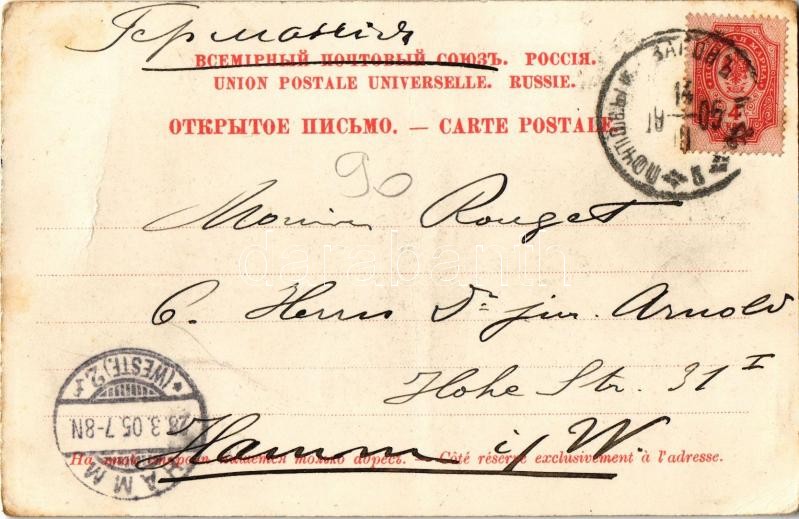 Германія
ВСЕМІРНЫЙ ПОЧТОВЫЙ СОЮЗЪ. РОССІЯ.
UNION POSTALE UNIVERSELLE. RUSSIE.
ОТКРЫТОЕ ПИСЬМО. — CARTE POSTALE
90
Rouget
C. Herrn Dr jur. Arnold
Hohe Str. 31 I
Hamm i/W.
На этой сторонѣ пишется только адресъ. — Côté réservé exclusivement à l'adresse.
HAMM
(WESTF.)
28.3.05.7-8N.
ПОЧТОВЫЙ ВАГОНЪ
4
darabanth